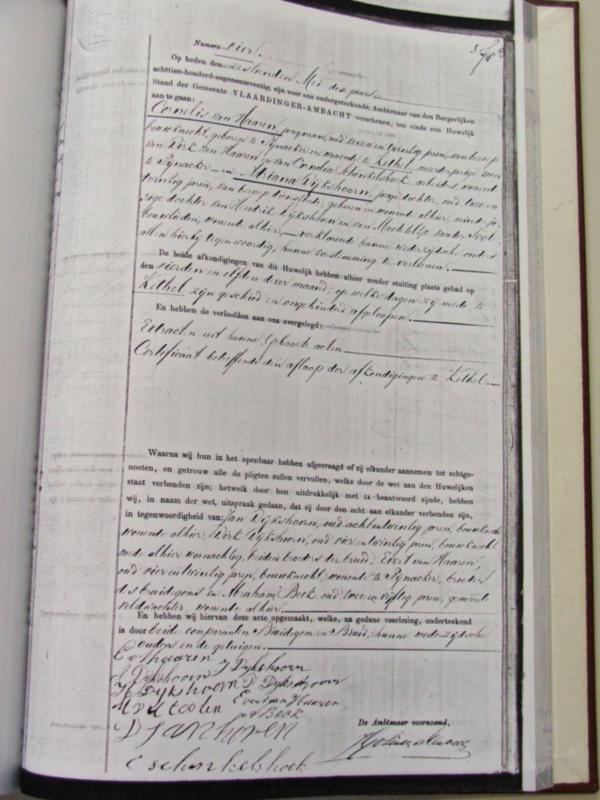 Numero vier.
Op heden den zestienden Mei des jaars
achttien-honderd-negenenzeventig, zijn voor ons ondergeteekende, Ambtenaar van den Burgerlijken
Stand der Gemeente VLAARDINGER-AMBACHT verschenen, ten einde een Huwelijk
aan te gaan:
Cornelis van Haaren, jongman, oud zeven en twintig jaren, van beroep
bouwknecht, geboren te Pijnacker en wonende te Kethel, meerderjarige zoon
van Dirk van Haaren en van Cornelia Schinkelshoek, arbeiders, wonende
te Pijnacker en Adriana Dijkshoorn, jonge dochter, oud twee en
twintig jaren, van beroep dienstbode, geboren en wonende alhier, minderja-
rige dochter van Hendrik Dijkshoorn en van Machteltje van der
bouwlieden, wonende alhier, verklarende hunne wederzijdsche ouders
allen hierbij tegenwoordig, hunne toestemming te verleenen.
De beide afkondigingen van dit Huwelijk hebben alhier zonder stuiting plaats gehad op
den vierden en elfden dezer maand, op welke dagen zij mede te
Kethel zijn geschied en ongehinderd afgeloopen.
En hebben de verloofden aan ons overgelegd:
Extracten uit hunne Geboorteacten
Certificaat betreffende den afloop der afkondigingen te Kethel.
Waarna wij hun in het openbaar hebben afgevraagd of zij elkander aannemen tot echtge-
nooten, en getrouw alle de pligten zullen vervullen, welke door de wet aan den Huwelijken
staat verbonden zijn; hetwelk door hen uitdrukkelijk met ja beantwoord zijnde, hebben
wij, in naam der wet, uitspraak gedaan, dat zij door den echt aan elkander verbonden zijn,
in tegenwoordigheid van: Jan Dijkshoorn, oud acht en twintig jaren, bouwknecht
wonende alhier, Dirk Dijkshoorn, oud vier en twintig jaren, bouwknecht
mede alhier woonachtig, beiden broeders der bruid, Evert van Haaren,
oud vier en twintig jaren, bouwknecht, wonende te Pijnacker, broeder
des bruidegoms en Abraham Boek, oud twee en vijftig jaren, gemeente
veldwachter, wonende alhier.
En hebben wij hiervan deze acte opgemaakt, welke, na gedane voorlezing, onderteekend
is door beide comparanten Bruidegom en Bruid, hunne wederzijdsche
Ouders en de getuigen.
C v haaren J Dijkshoorn
A Dijkshoorn D Dijkshoorn
H Dijkshoorn Evert van Haaren
A Boek
De Ambtenaar voornoemd,
C schinkelshoek